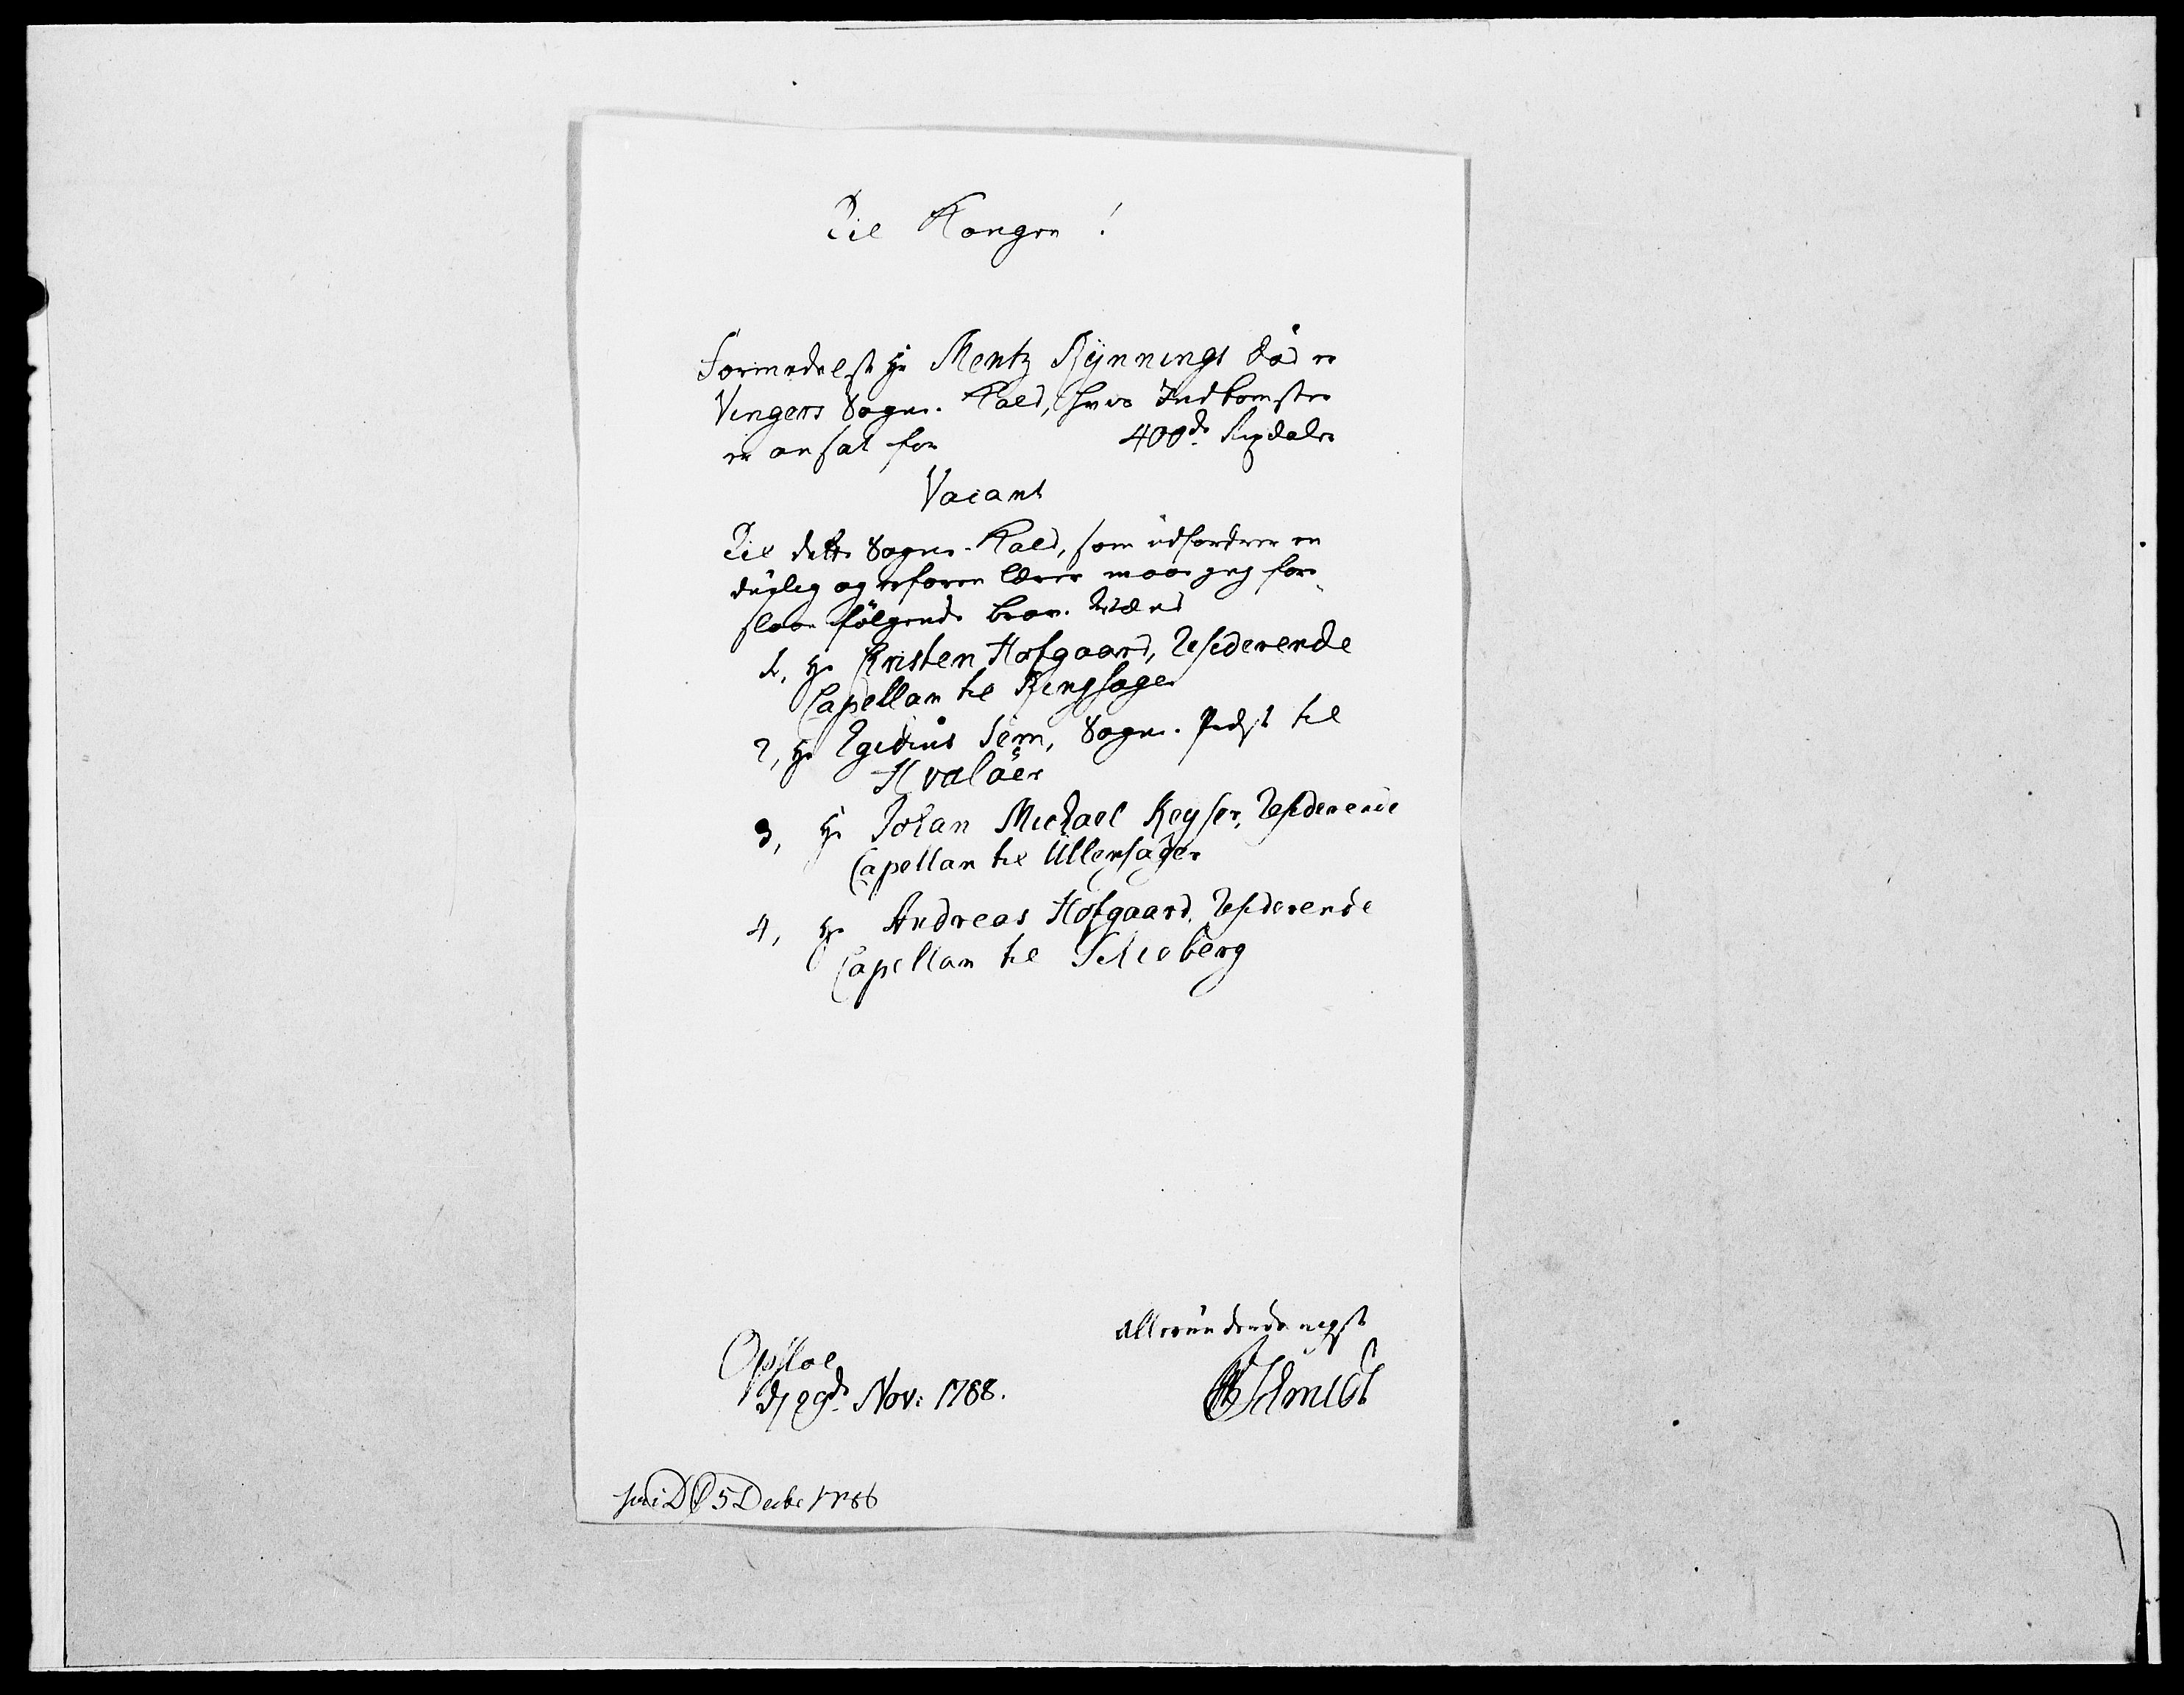 Til Kongen!
Formedelst Hr Mentz Rynnings död er
Vingers Sogne-Kald, hvis Indkomster
er ansat for 400de Rixdaler
Vacant
Til dette Sogne-Kald, som udfordrer en
dygtig og erfaren Lærer maae jeg fore-
slaae følgende brave Mænd
1, Hr Cristen Hofgaard, Residerende
Capellan til Ringsager
2, Hr Egidius Sem, Sogne-Præst til
Hvalöer
3, Hr Johan Michael Keyser, Residerende
Capellan til Ullensager
4, Hr Andreas Hofgaard, Residerende
Capellan til Schieberg
allerunderdanigst
Opsloe
d 29de Nov: 1788.
Schmidt
5 Decbr 1788